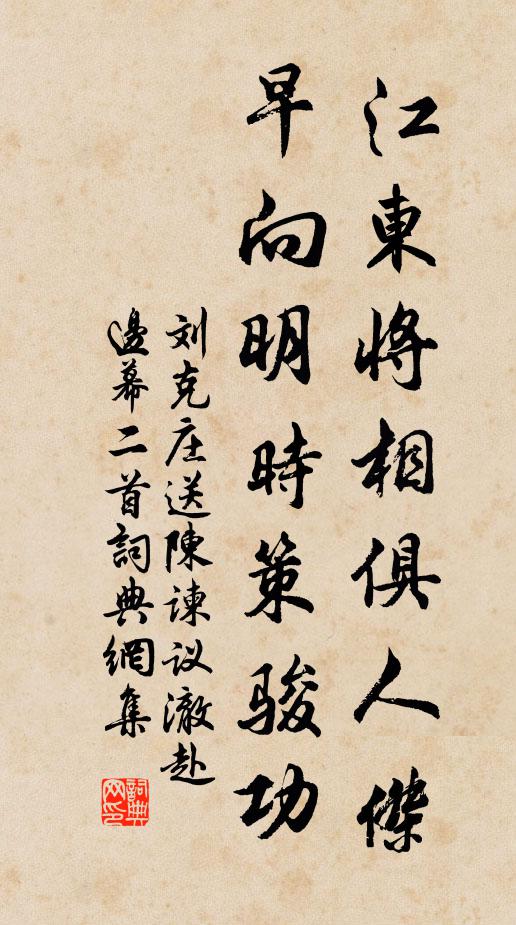 江東將相俱人傑
早向明時策骏功
刘克庄送陳諫议澈赴
邊幕二首詞典網集
詞典
网印